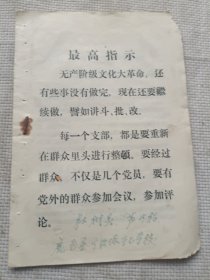 最高指示
无产阶级文化大革命，还
有些事没有做完，现在还要继
续做，譬如讲斗、批、改。
每一个支部，都是要重新
在群众里头进行整顿。要经过
群众，不仅是几个党员，要有
党外的群众参加会议，参加评
论。